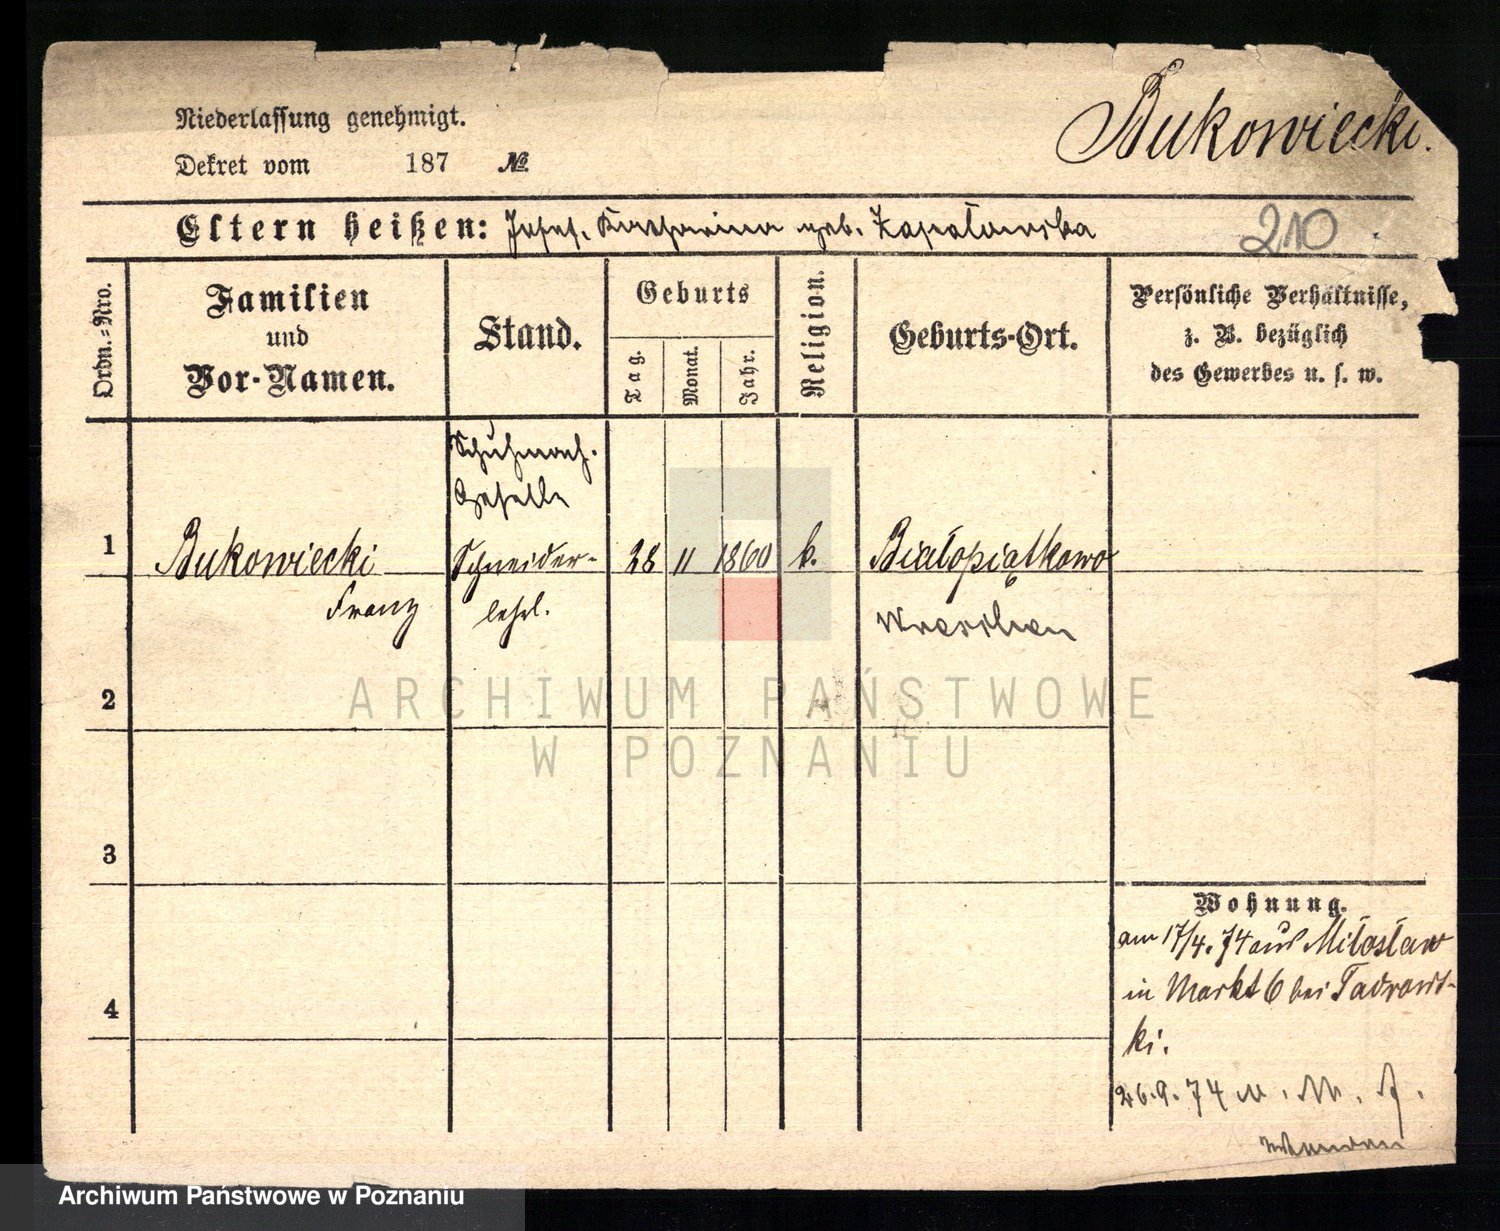 Niederlassung genehmigt.
Dekret vom 187 №
Bukowiecki.
Eltern heißen: Josef, Katharina geb. Zapałowska
210
Ordn.-Nro.
Familien
und
Vor-Namen.
Stand.
Geburts
Tag.
Monat.
Jahr.
Religion.
Geburts-Ort.
Persönliche Verhältnisse,
z. B. bezüglich
des Gewerbes u. s. w.
Schuhmach.
Geselle
1 Bukowiecki Schneider- 28 11 1860 k. Białopiątkowo
Franz lehrl. Wreschen
2
ARCHIWUM PAŃSTWOWE
W POZNANIU
3
Wohnung.
am 17/4. 74 aus Miłosław
4
in Markt 6 bei
ki.
26.9.74 n.
Archiwum Państwowe w Poznaniu